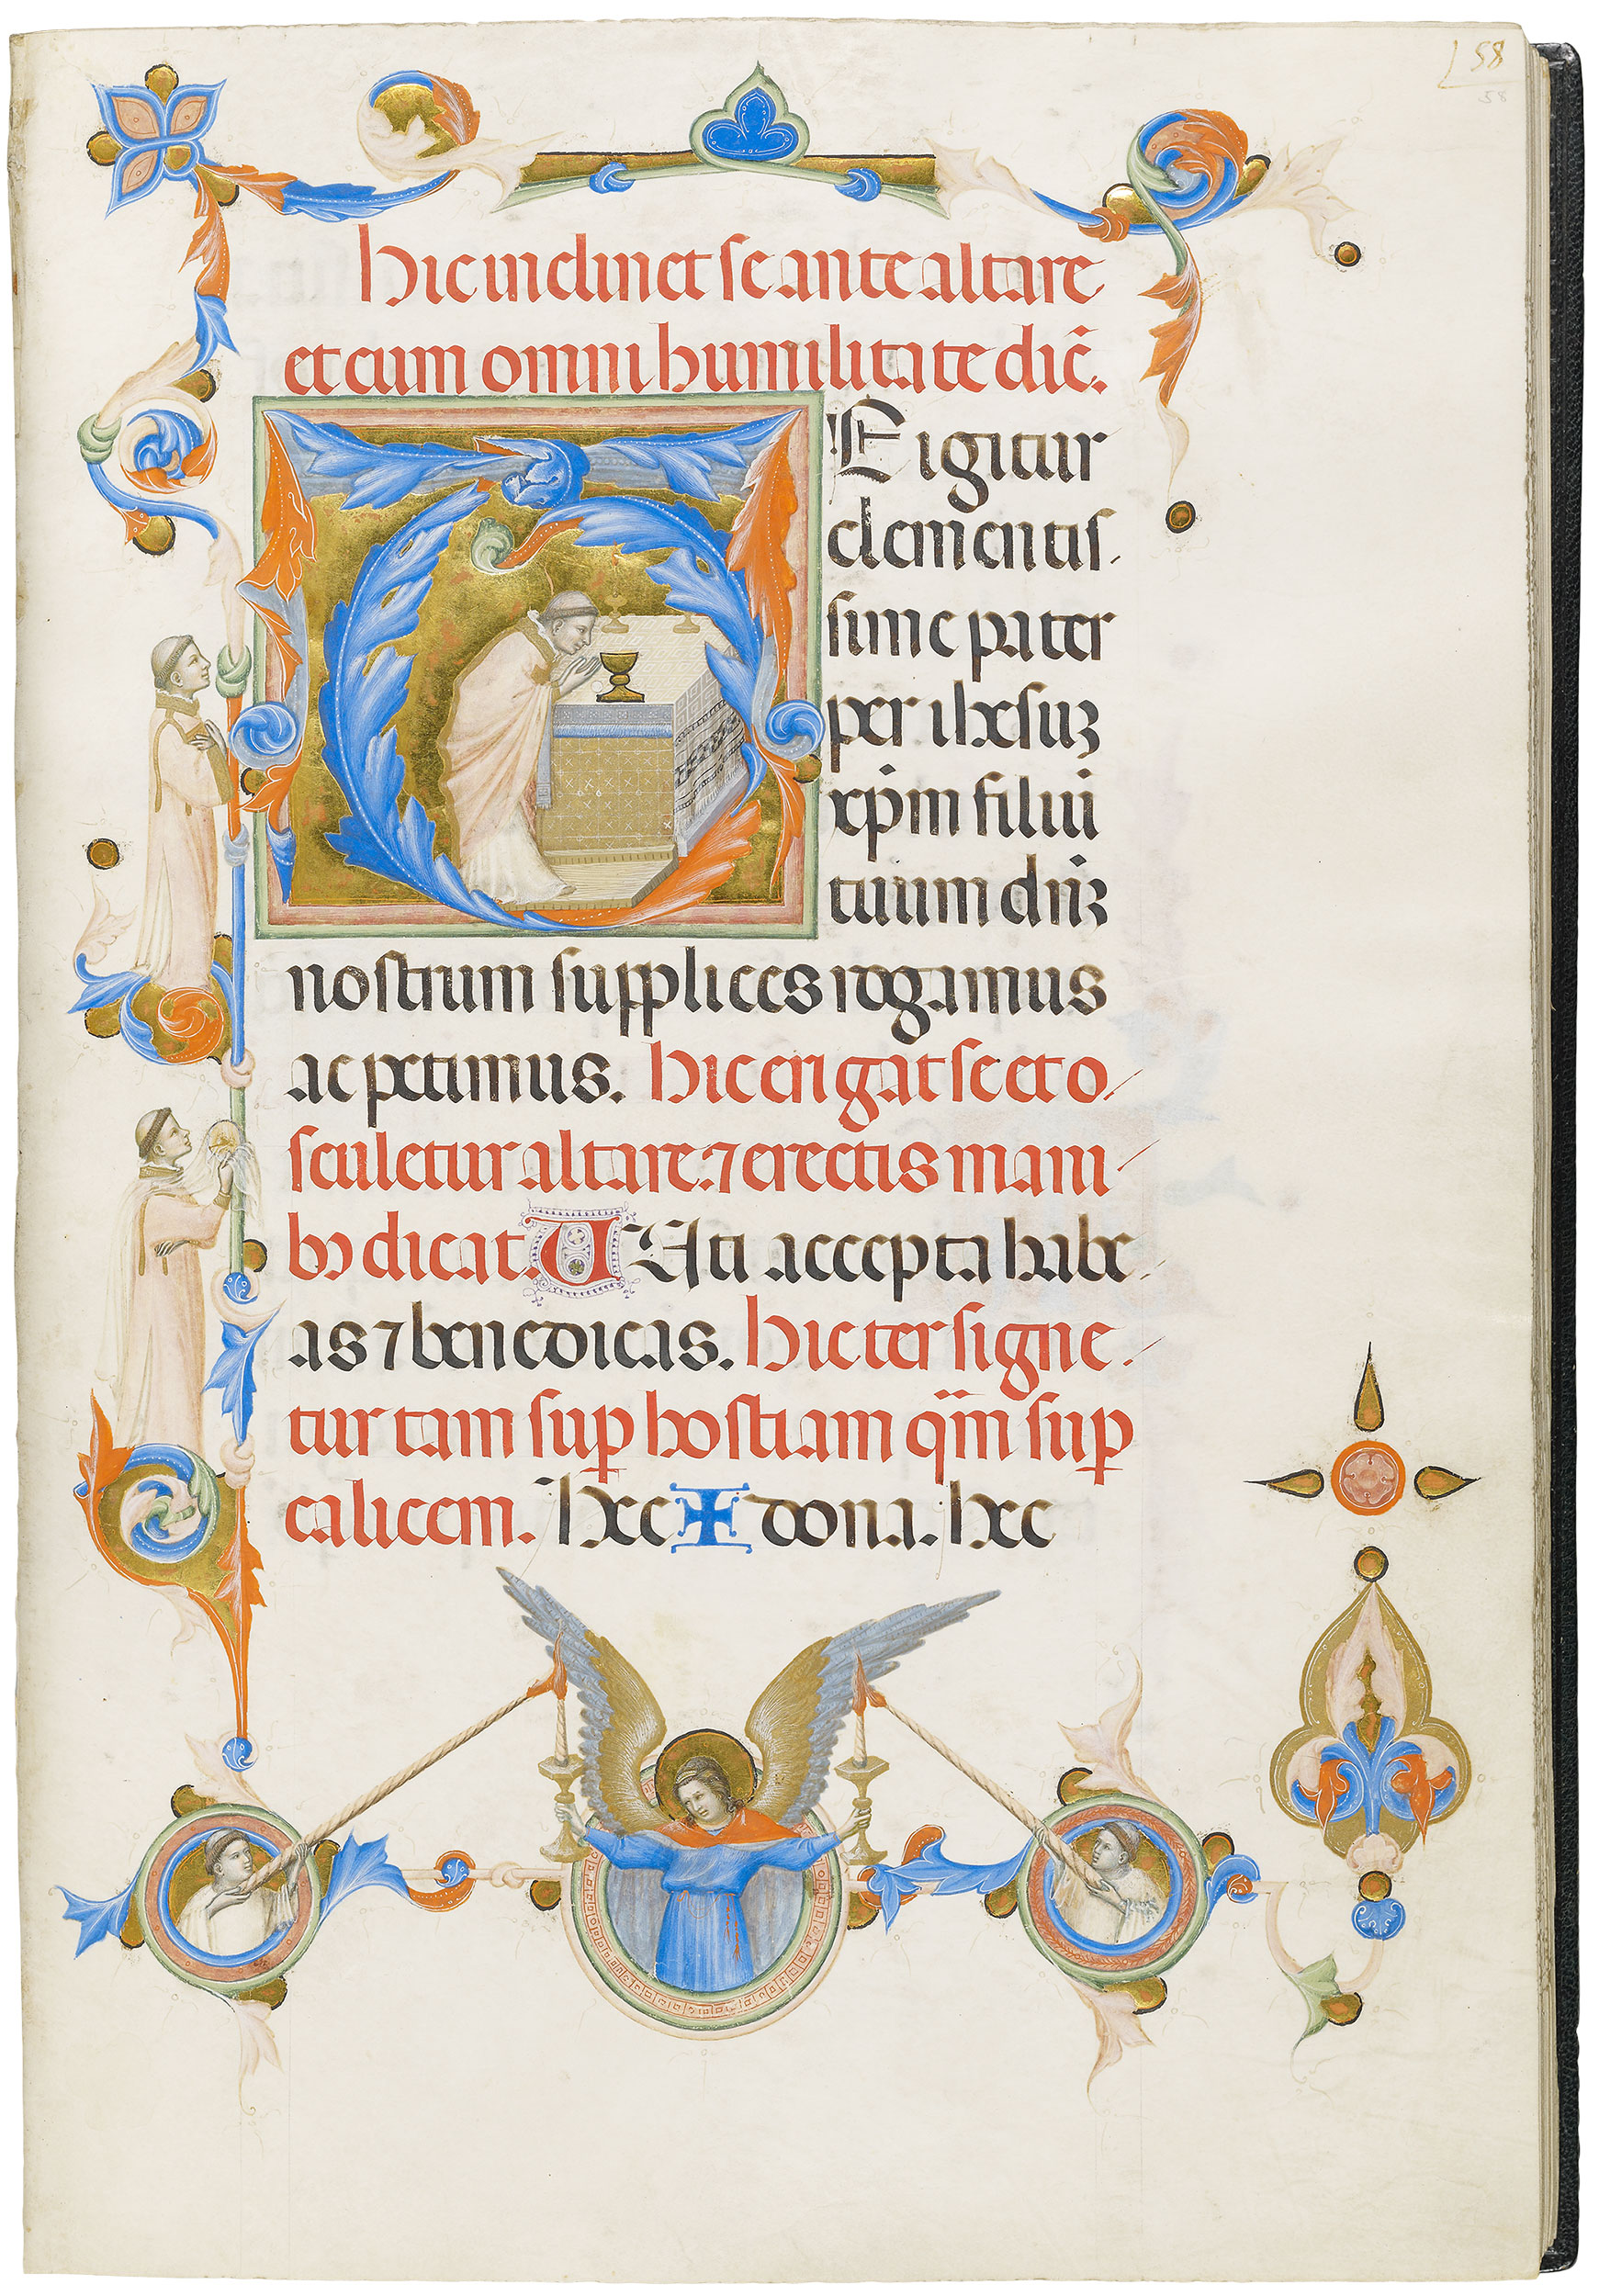 58
58
Hic inclinet se ante altare
et cum omni humilitate dic̄.
TE igitur
clementis
sime pater
per ihesuꝫ
xp̄m filiū
tuum dn̄ꝫ
nostrum supplices rogamus
ac petimus. Hic erigat se et o
sculetur altare. ⁊ erectis mani
bꝫ dicat. UTi accepta habe
as ⁊ benedicas. Hic ter signe
tur tam suꝑ hostiam qm̄ suꝑ
calicem. hec ✠ dona. hec